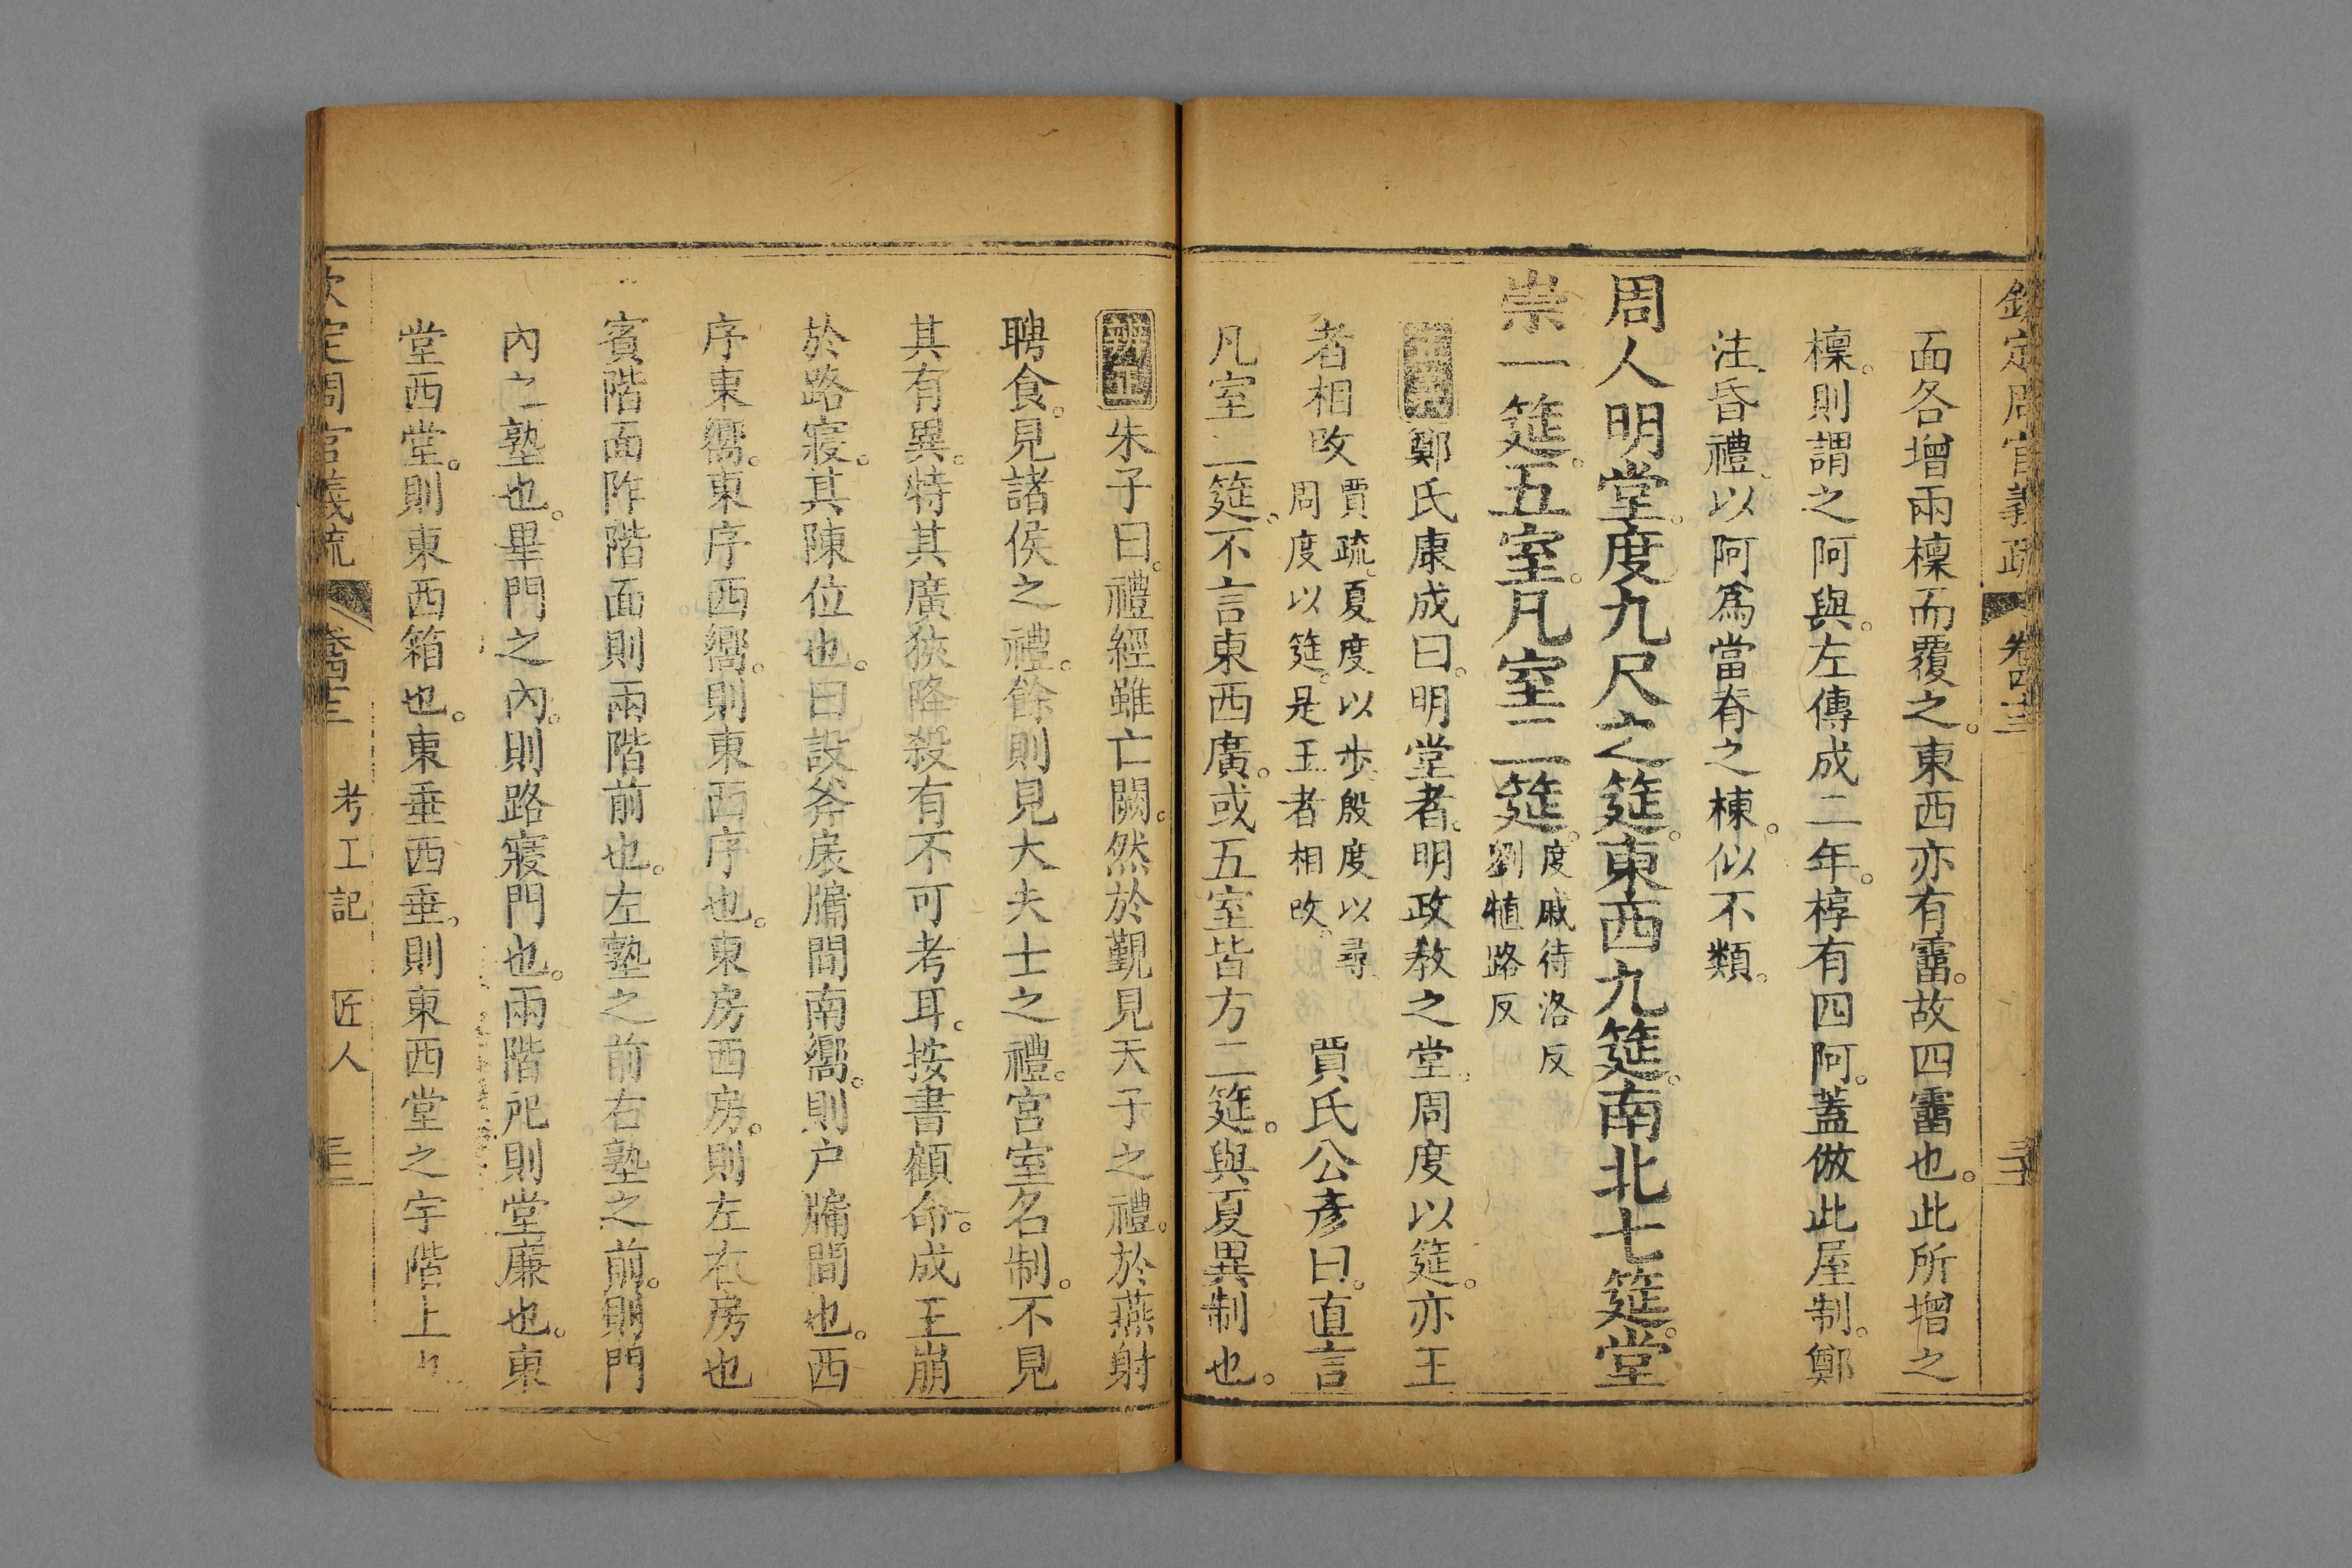 欽定周官義疏 卷四十三
面各增兩檁而覆之。東西亦有霤。故四霤也。此所增之
檁。則謂之阿與。左傳成二年。椁有四阿。蓋倣此屋制。鄭
注昏禮。以阿為當脊之棟。似不類。
周人明堂。度九尺之筵。東西九筵。南北七筵。堂
崇一筵。五室。凡室二筵。度戚待洛反
劉犆路反
鄭氏康成曰。明堂者。明政教之堂。周度以筵。亦王
者相改賈疏。夏度以步。殷度以尋。
周度以筵。是王者相改。賈氏公彥曰。直言
凡室二筵。不言東西廣。或五室皆方二筵。與夏異制也。
辨正朱子曰。禮經雖亡闕。然於覲見天子之禮。於燕射
聘食。見諸侯之禮。餘則見大夫士之禮。宮室名制。不見
其有異。特其廣狹降殺有不可考耳。按書顧命。成王崩
於路寢。其陳位也。曰設斧扆牖間南嚮。則户牖間也。西
序東嚮。東序西嚮。則東西序也。東房西房。則左右房也
賓階面阼階面則兩階前也。左塾之前右塾之前。則門
內之塾也。畢門之內。則路寢門也。兩階戺則堂廉也。東
堂西堂。則東西箱也。東垂西垂。則東西堂之宇階上也
欽定周官義疏 卷四十三 考工記 匠人